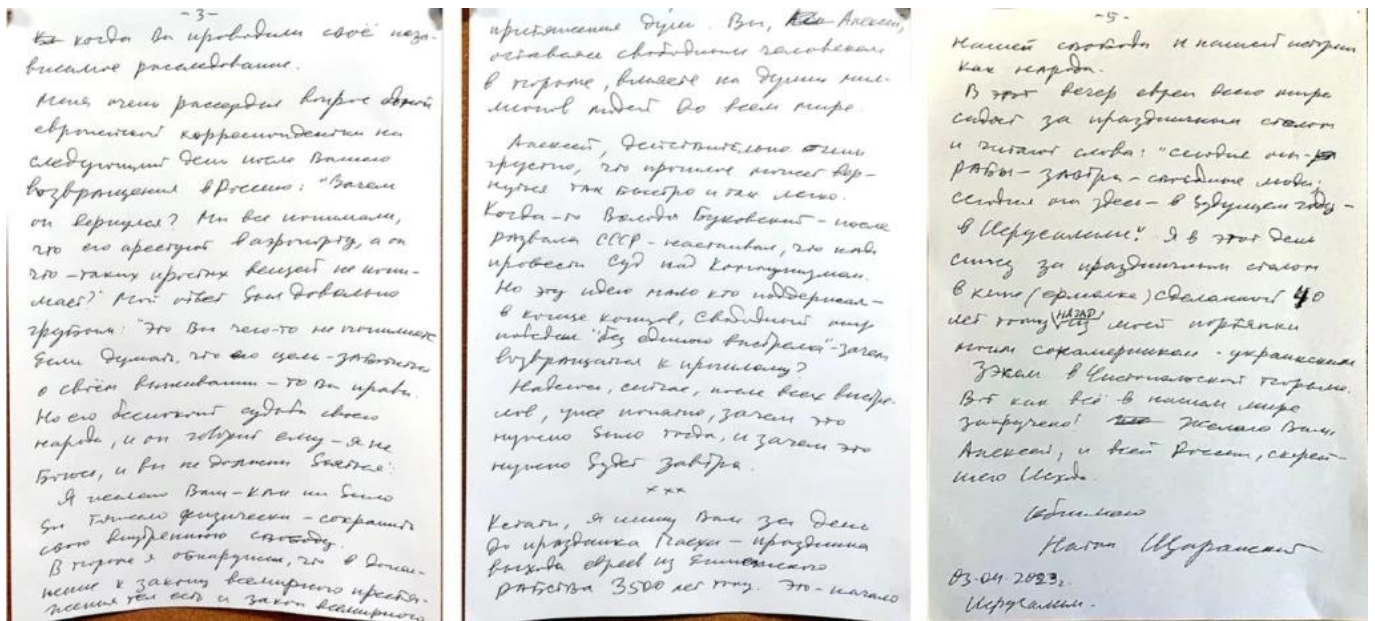 -3-
когда Вы проводили своё неза-
висимое расследование.
Меня очень рассердил вопрос одной
европейской корреспондентки на
следующий день после Вашего
возвращения в Россию: "Зачем
он вернулся? Мы все понимали,
что его арестуют в аэропорту, а он
что-таких простых вещей не пони-
мает?" Мой ответ был довольно
грубым: "Это Вы чего-то не понимаете
Если думать, что его цель-заботиться
о своём выживании-то Вы правы.
Но его беспокоит судьба своего
народа, и он говорит ему-я не
боюсь, и вы не должны бояться".
Я желаю Вам-как ни было
бы тяжело физически-сохранить
свою внутреннюю свободу.
В тюрьме я обнаружил, что в допол-
нение к закону всемирного притя-
жения тел есть и закон всемирного
притяжения душ. Вы, Алексей,
оставаясь свободным человеком
в тюрьме, влияете на души мил-
лионов людей во всем мире.
Алексей, действительно очень
грустно, что прошлое может вер-
нуться так быстро и так легко.
Когда-то Володя Буковский-после
развала СССР-настаивал, что надо
провести Суд над Коммунизмом.
Но эту идею мало кто поддержал-
в конце концов, свободный мир
победил "без единого выстрела"-зачем
возвращаться к прошлому?
Надеюсь, сейчас, после всех выстре-
лов, уже понятно, зачем это
нужно было тогда, и зачем это
нужно будет завтра.
×××
Кстати, я пишу Вам за день
до праздника Пасхи-праздника
выхода евреев из Египетского
рабства 3500 лет тому. Это-начало
-5-
нашей свободы и нашей истории
как народа.
В этот вечер евреи всего мира
сидят за праздничным столом
и читают слова: "сегодня мы-
рабы-завтра-свободные люди;
сегодня мы здесь-в будущем году-
в Иерусалиме." Я в этот день
сижу за праздничным столом
в кипе (ермолке) сделанной 40
лет тому НАЗАД из моей портянки
моим сокамерником-украинским
зэком в Чистопольской тюрьме.
Вот как всё в нашем мире
закручено! Желаю Вам
Алексей, и всей России, скорей-
шего Исхода.
Обнимаю
Натан Щаранский
03.04.2023г.
Иерусалим.